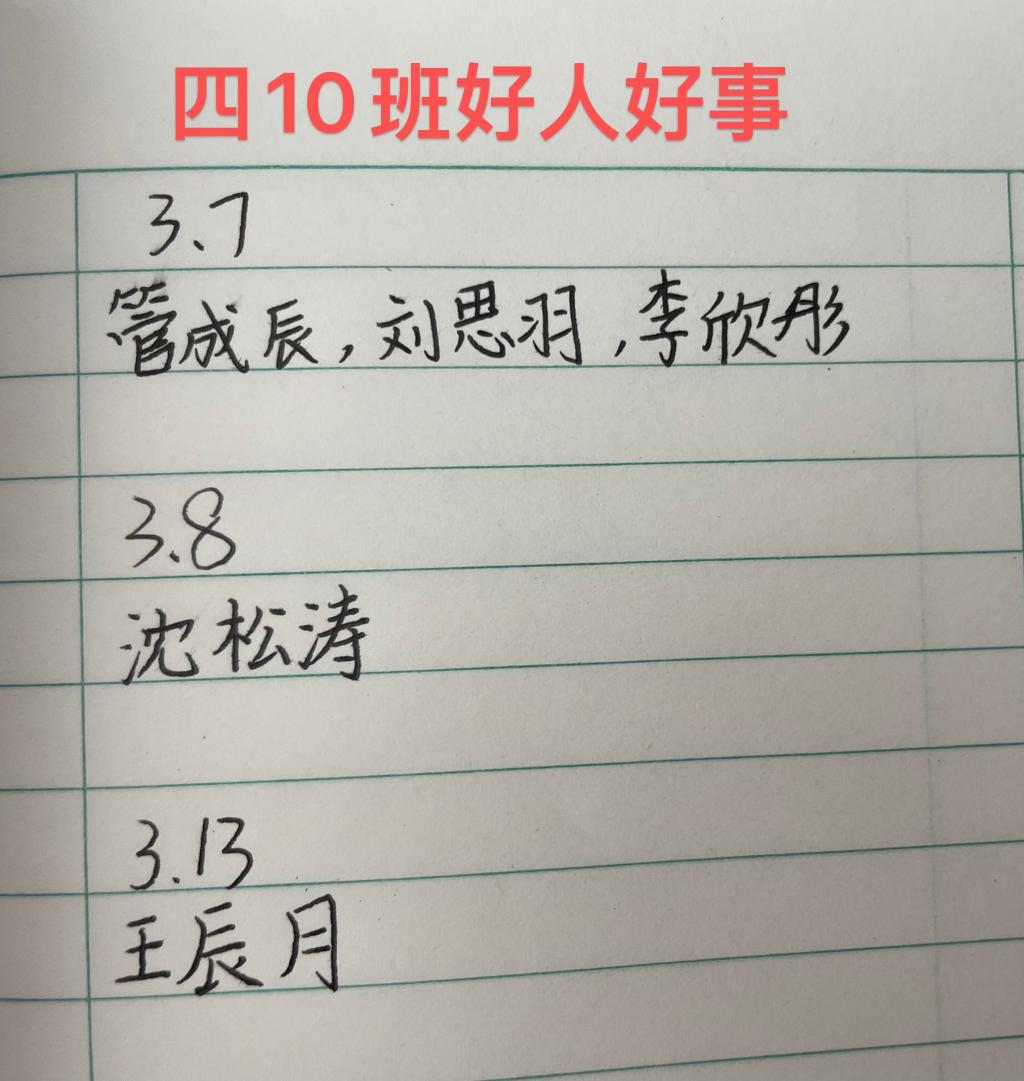 四10班好人好事
3.7
管成辰,刘思羽,李欣彤
3.8
沈松涛
3.13
王辰月